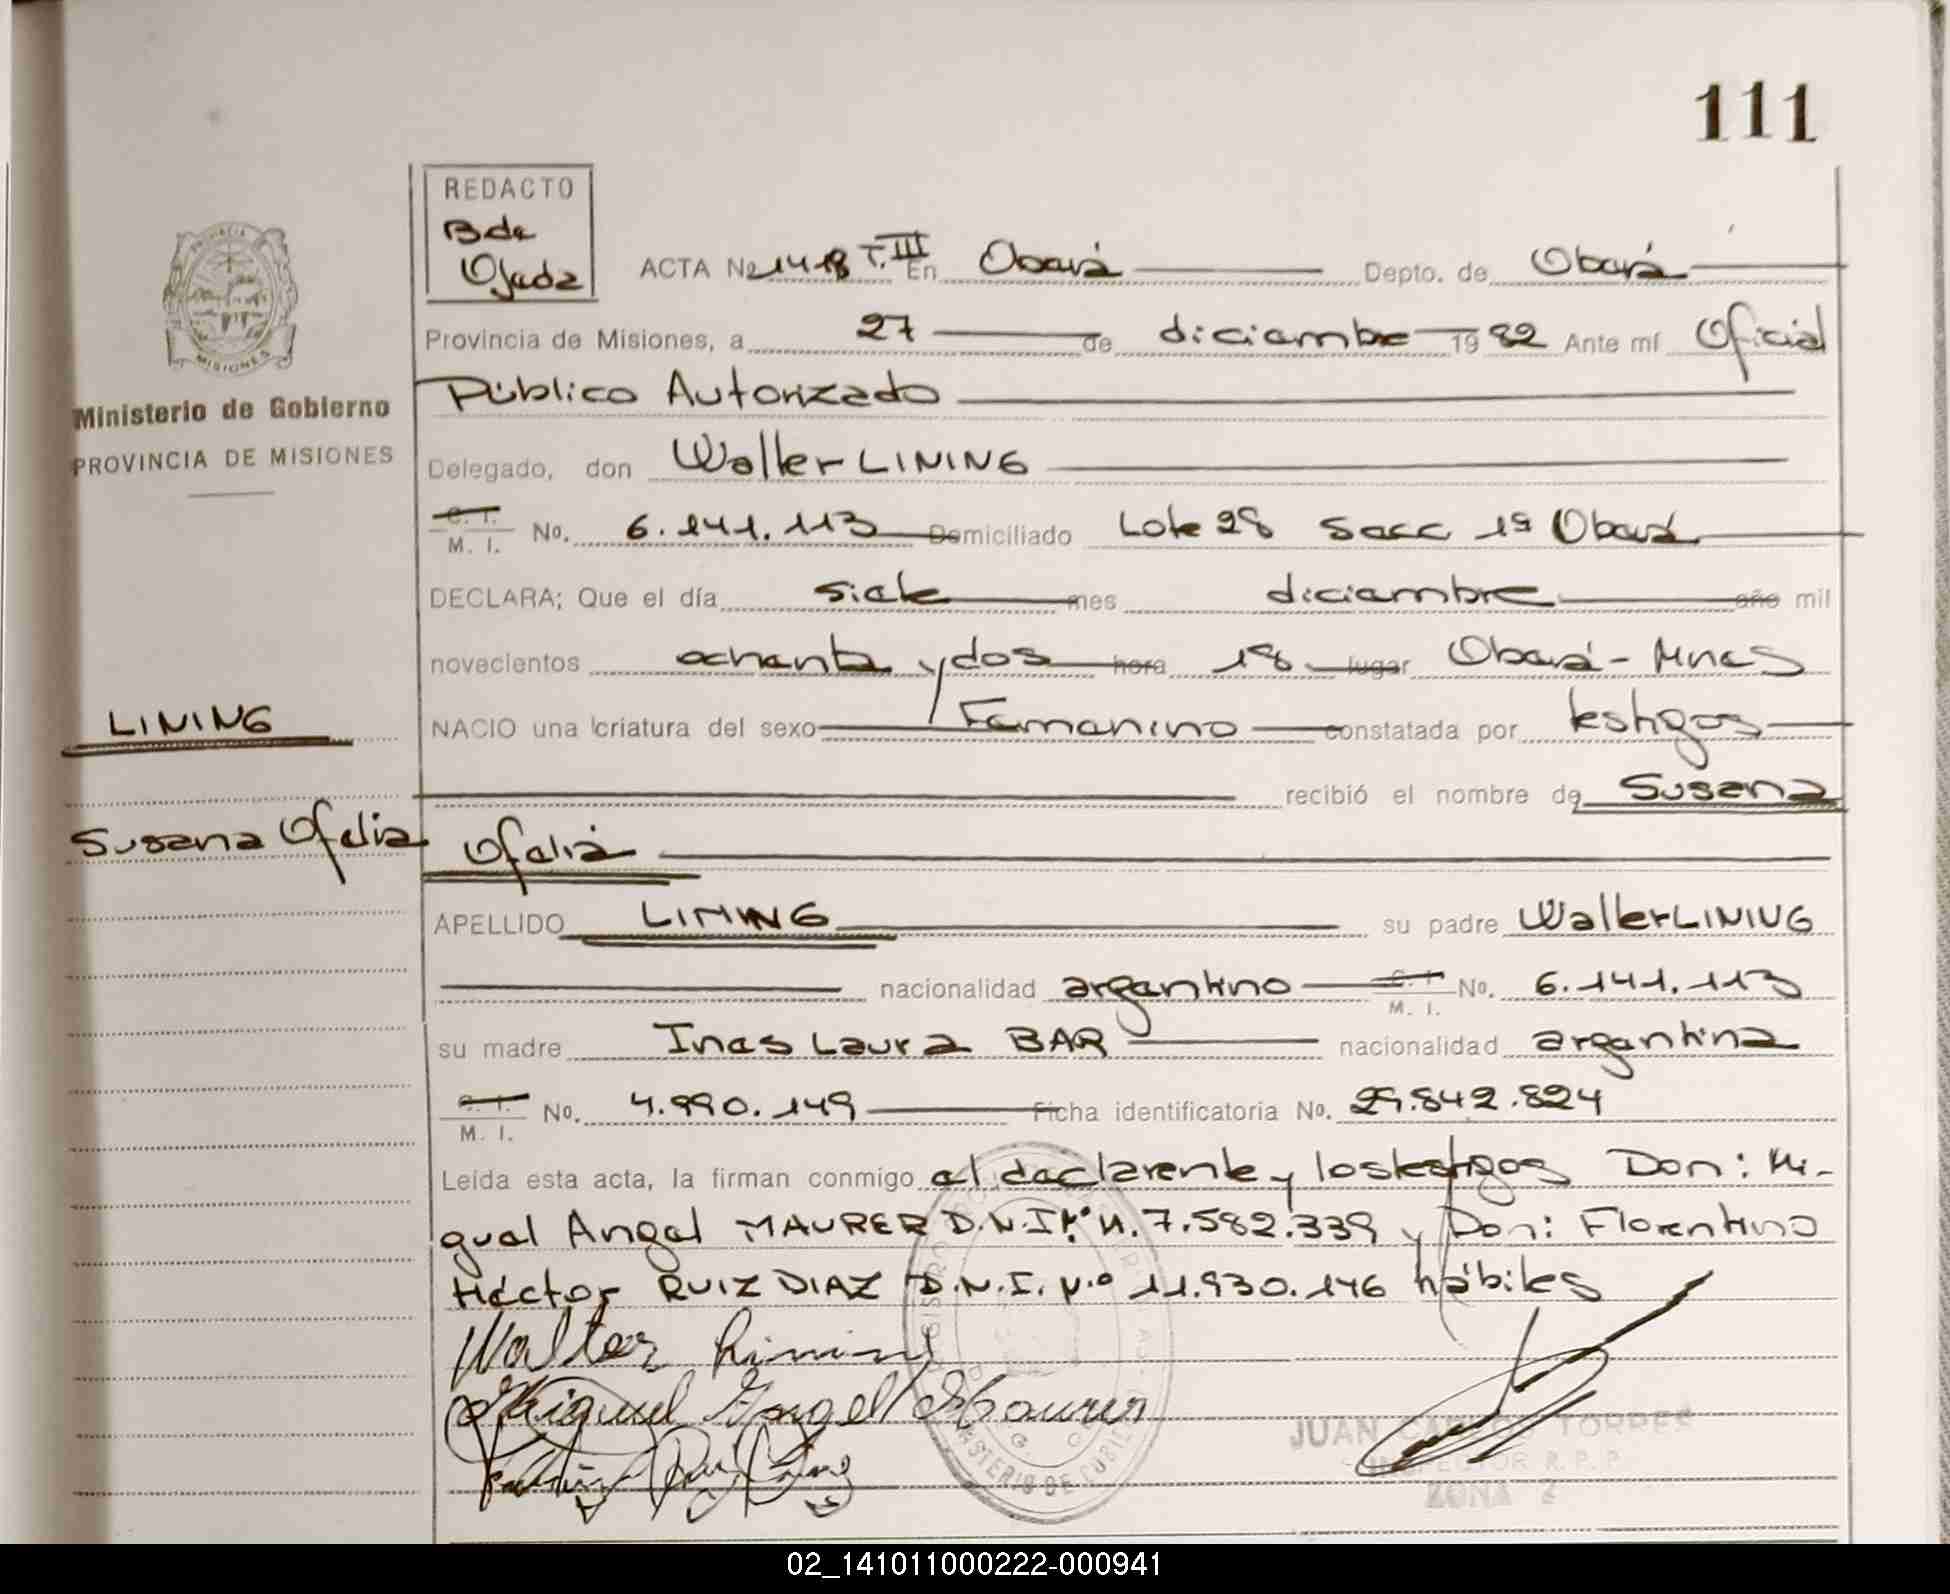 111
REDACTO
B de
Ojeda
ACTA Nº 1418 T. III En Oberá Depto. de Oberá
Provincia de Misiones, a 27 de diciembre 1982 Ante mí Oficial
Público Autorizado
Delegado, don Walter LINING
C. I.
M. I. No. 6.141.113 Domiciliado Lote 28 Secc 1ª Oberá
DECLARA; Que el día siete mes diciembre año mil
novecientos ochenta y dos hora 18 lugar Oberá - Mnes
NACIO una criatura del sexo Femenino constatada por testigos
recibió el nombre de Susana
Ofelia
APELLIDO LINING su padre Walter LINING
nacionalidad argentino C. I.
M. I. No. 6.141.113
su madre Ines Laura BAR nacionalidad argentina
C. I.
M. I. No. 4.990.149 Ficha identificatoria No. 29.842.824
Leída esta acta, la firman conmigo el declarente y los testigos Don: Mi-
guel Angel MAURER D.N.I. Nº 7.582.339 y Don: Florentino
Héctor RUIZ DIAZ D.N.I. Nº 11.930.146 hábiles
Walter Lining
Miguel Angel Maurer
JUAN CARLOS TORRES
INSPECTOR R. P. P.
ZONA 2
PROVINCIA
MISIONES
Ministerio de Gobierno
PROVINCIA DE MISIONES
LINING
Susana Ofelia
02_141011000222-000941